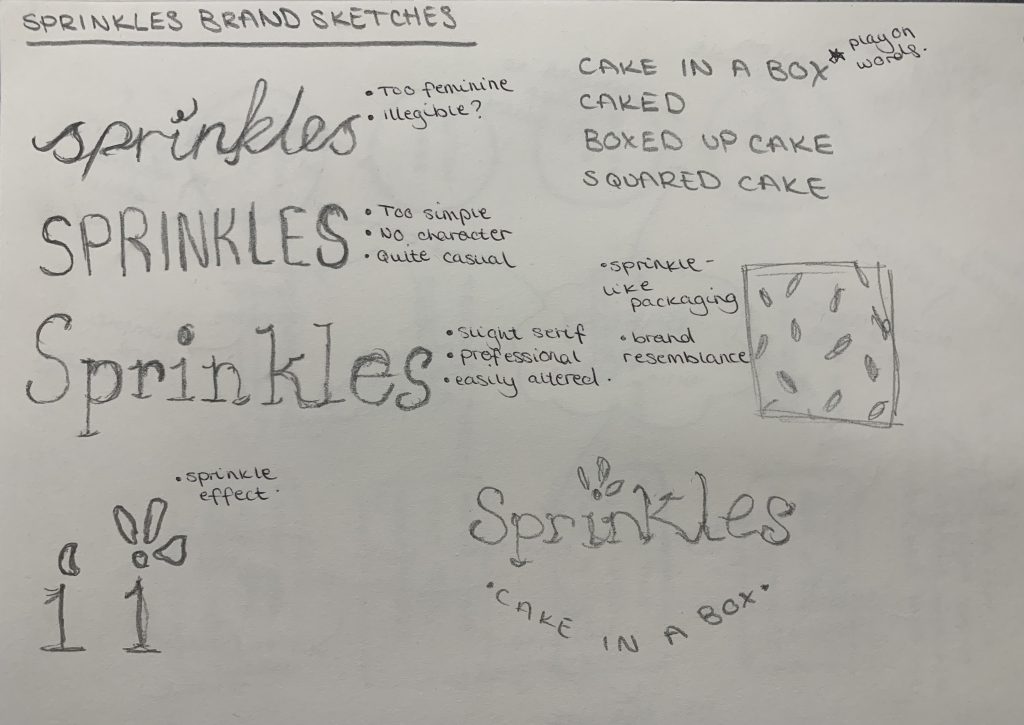 SPRINKLES BRAND SKETCHES
sprinkles
• Too feminine
• illegible?
SPRINKLES
• Too simple
• No character
• Quite casual
Sprinkles
• slight serif
• professional
• easily altered.
CAKE IN A BOX
* play on
words.
CAKED
BOXED UP CAKE
SQUARED CAKE
• sprinkle-
like
packaging
• brand
resemblance
• sprinkle
effect.
i i
Sprinkles
• CAKE IN A BOX •